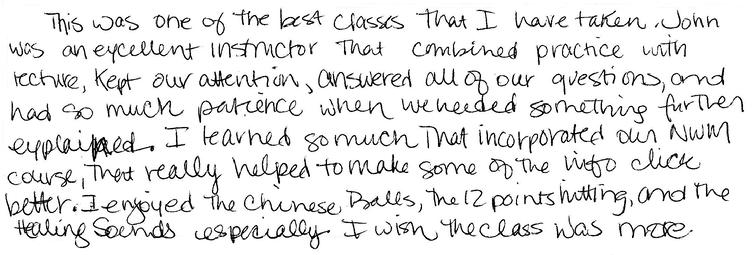 This was one of the best classes that I have taken. John
was an excellent instructor that combined practice with
lecture, kept our attention, answered all of our questions, and
had so much patience when we needed something further
explained. I learned so much that incorporated our NWM
course, that really helped to make some of the info click
better. I enjoyed the Chinese Balls, the 12 points hitting, and the
Healing Sounds especially. I wish the class was more.